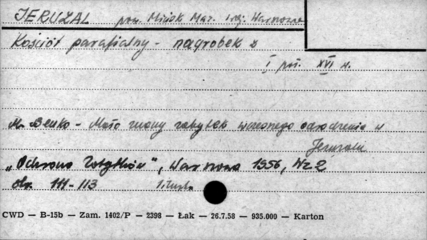 JERUZAL pow. Mińsk Maz. woj. Warszawa
Kościół parafialny - nagrobek z
I poł. XVI w.
M. Benko - Mało znany zabytek wczesnego odrodzenia w
Jeruzalu
„Ochrona Zabytków", Warszawa 1956, Nr 2
str. 111-113
CWD — B-15b — Zam. 1402/P — 2398 — Łak — 26.7.58 — 935.000 — Karton